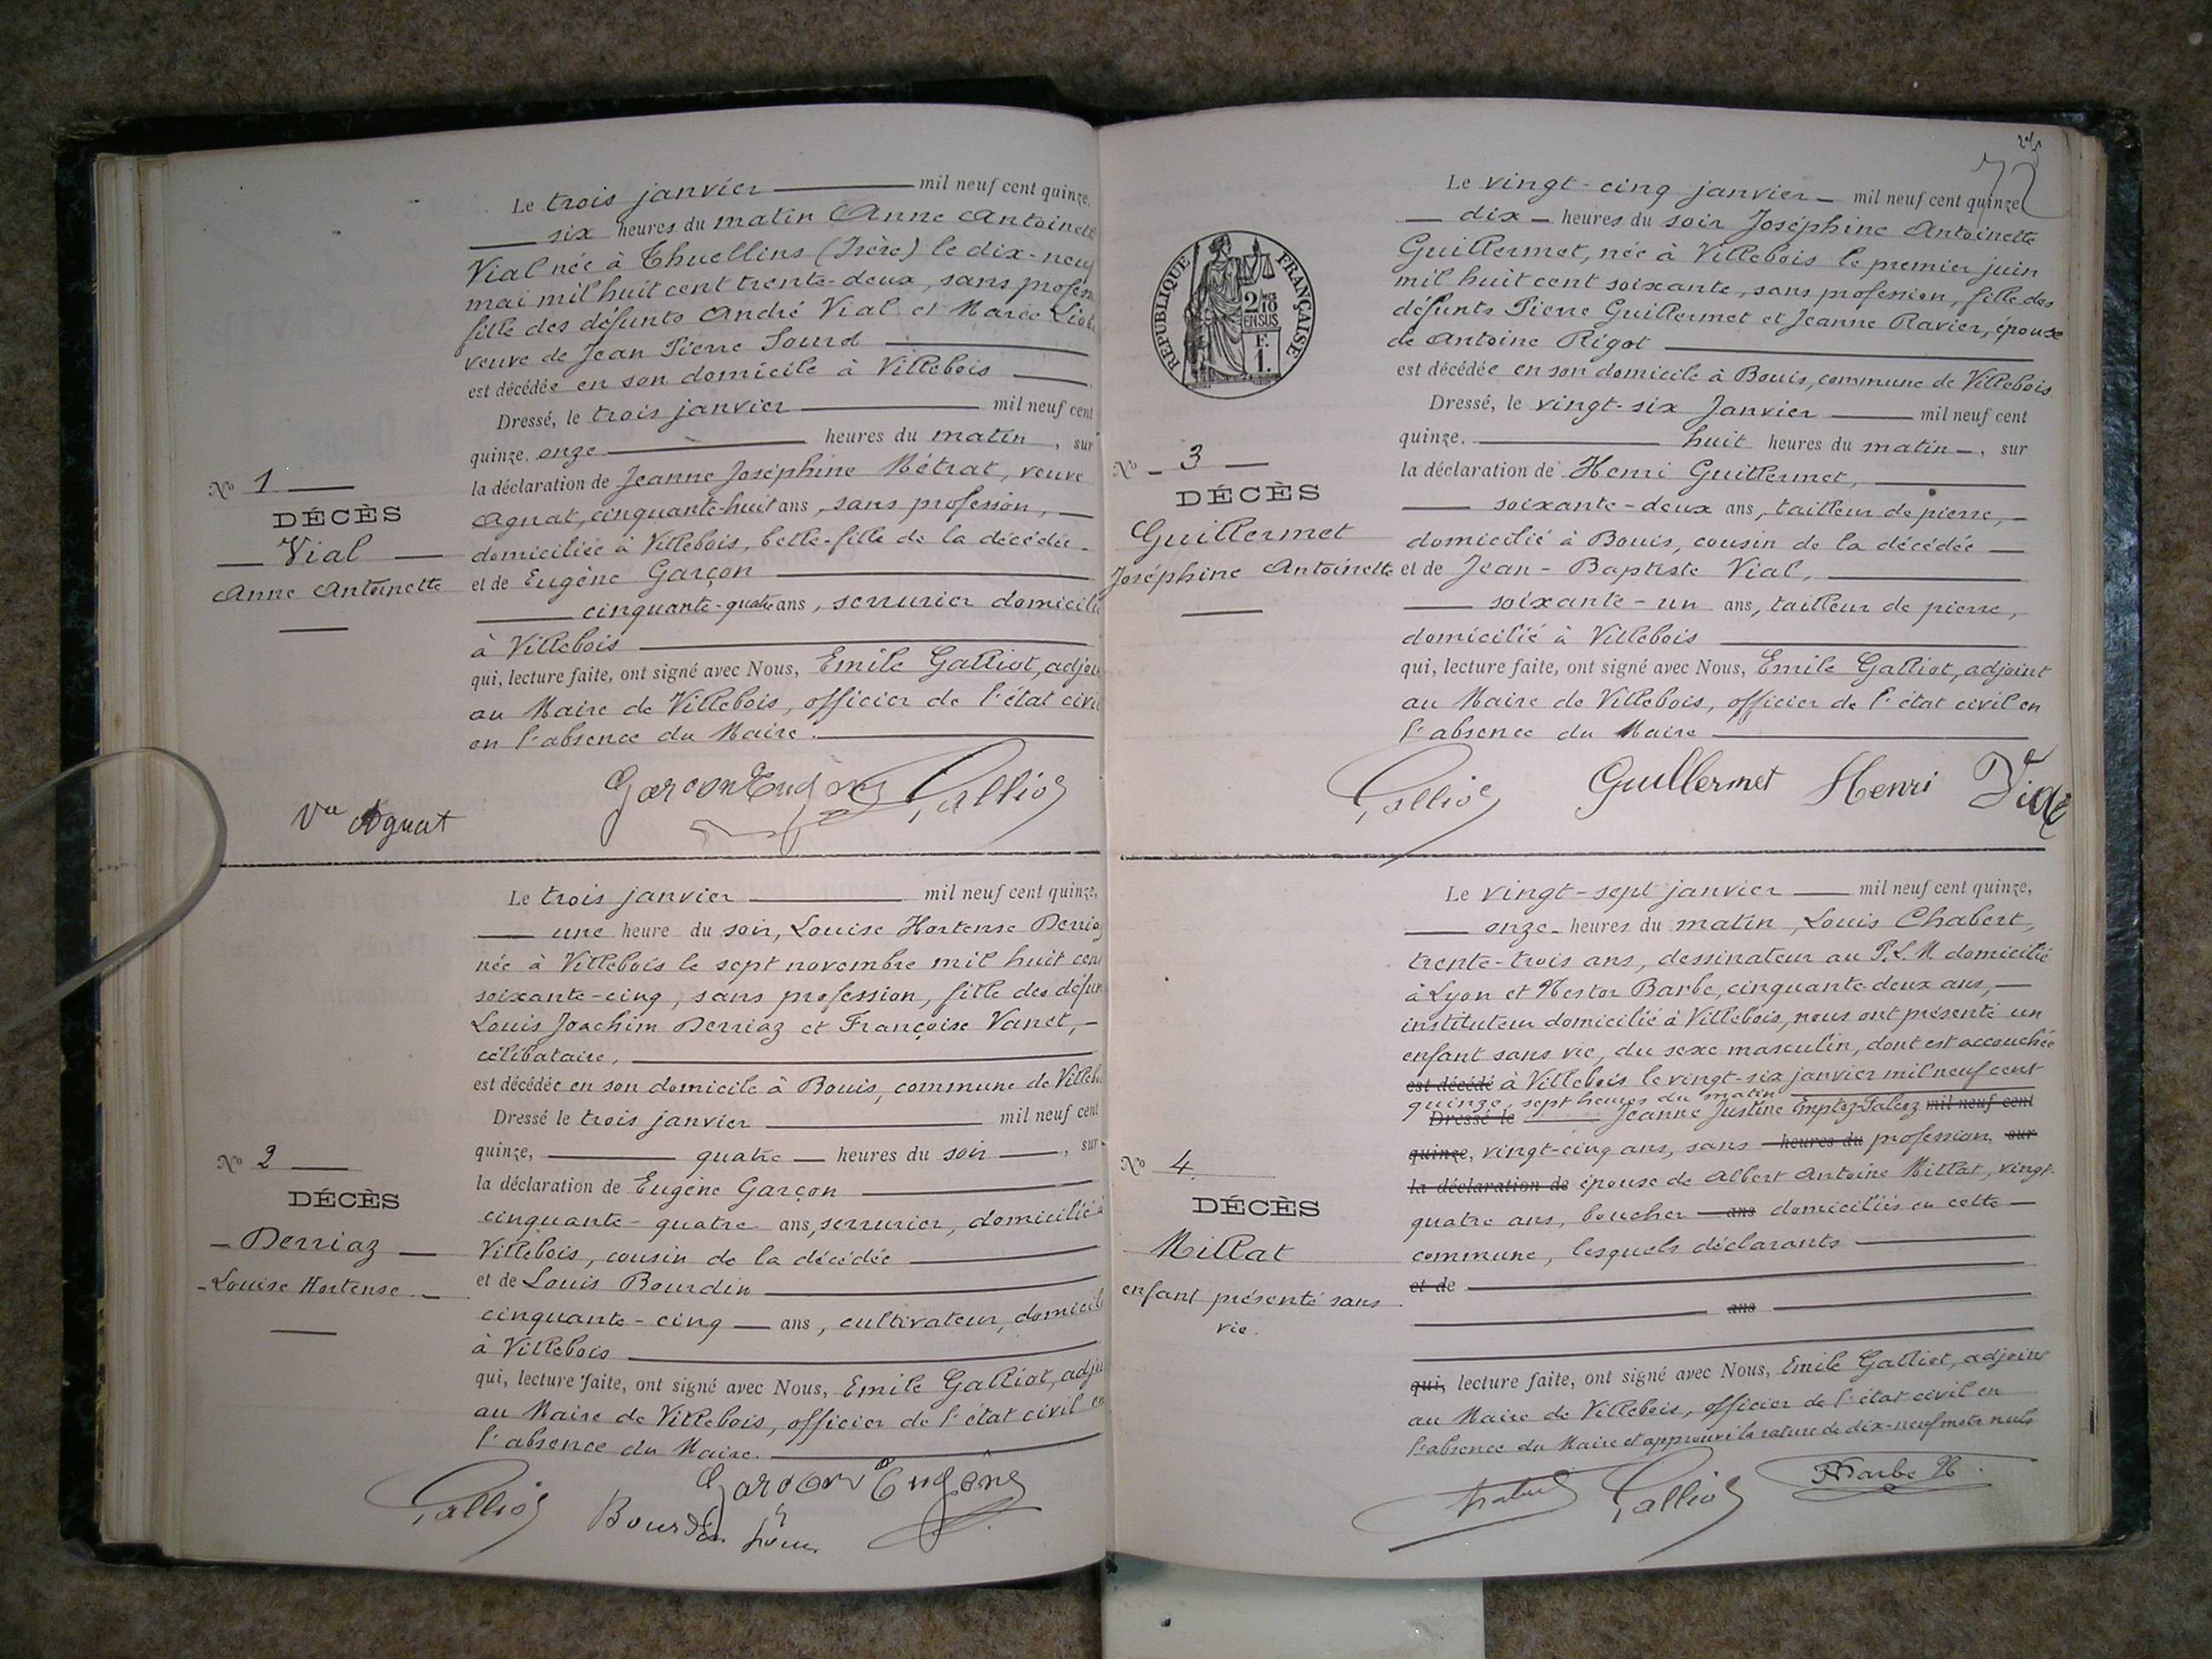 Le trois janvier mil neuf cent quinze,
six heures du matin Anne Antoinett
Vial née à Thuellins (Isère) le dix-neuf
mai mil huit cent trente-deux, sans profess
fille des défunts André Vial et Marie
veuve de Jean Pierre Sourd
est décédée en son domicile à Villebois
Dressé, le trois janvier mil neuf cent
quinze, onze heures du matin, sur
la déclaration de Jeanne Joséphine Métrat, veuve
Agnat, cinquante-huit ans, sans profession,
domiciliée à Villebois, belle-fille de la décédée
et de Eugène Garçon
cinquante-quatre ans, serrurier domicilié
à Villebois
qui, lecture faite, ont signé avec Nous, Emile Galliot, adjoi
au Maire de Villebois, officier de l'état civil
en l'absence du Maire.
No 1
DÉCÈS
Vial
Anne Antoinette
Vve Agnat Garçon Eugène Galliot
Le trois janvier mil neuf cent quinze,
une heure du soir, Louise Hortense Derriaz
née à Villebois le sept novembre mil huit cent
soixante-cinq, sans profession, fille des défun
Louis Joachim Derriaz et Françoise Vanet,
célibataire,
est décédée en son domicile à Bouis, commune de Villebo
Dressé le trois janvier mil neuf cent
quinze, quatre heures du soir, sur
la déclaration de Eugène Garçon
cinquante-quatre ans, serrurier, domicilié à
Villebois, cousin de la décédée
et de Louis Bourdin
cinquante-cinq ans, cultivateur, domicili
à Villebois
qui, lecture faite, ont signé avec Nous, Emile Galliot, adjoi
au Maire de Villebois, officier de l'état civil en
l'absence du Maire.
No 2
DÉCÈS
Derriaz
Louise Hortense
Galliot Bourdin Garçon Eugène
72
RÉPUBLIQUE FRANÇAISE
2/10
EN SUS
F.
1.
Le vingt-cinq janvier mil neuf cent quinze
dix heures du soir Joséphine Antoinette
Guillermet, née à Villebois le premier juin
mil huit cent soixante, sans profession, fille des
défunts Pierre Guillermet et Jeanne Ravier, épouse
de Antoine Rigot
est décédée en son domicile à Bouis, commune de Villebois
Dressé, le vingt-six Janvier mil neuf cent
quinze, huit heures du matin, sur
la déclaration de Henri Guillermet,
soixante-deux ans, tailleur de pierre,
domicilié à Bouis, cousin de la décédée
et de Jean-Baptiste Vial,
soixante-un ans, tailleur de pierre,
domicilié à Villebois
qui, lecture faite, ont signé avec Nous, Emile Galliot, adjoint
au Maire de Villebois, officier de l'état civil en
l'absence du Maire
No 3
DÉCÈS
Guillermet
Joséphine Antoinette
Galliot Guillermet Henri Vial
Le vingt-sept janvier mil neuf cent quinze,
onze heures du matin, Louis Chabert,
trente-trois ans, dessinateur au P.L.M domicilié
à Lyon et Nestor Barbe, cinquante-deux ans,
instituteur domicilié à Villebois, nous ont présenté un
enfant sans vie, du sexe masculin, dont est accouchée
est décédé à Villebois le vingt-six janvier mil neuf cent
quinze, sept heures du matin
Dressé le Jeanne Justine Emptoz-Falcoz mil neuf cent
quinze, vingt-cinq ans, sans heures du profession, sur
la déclaration de épouse de Albert Antoine Millat, vingt-
quatre ans, boucher ans domiciliés en cette
commune, lesquels déclarants
et de
ans
qui, lecture faite, ont signé avec Nous, Emile Galliot, adjoint
au Maire de Villebois, officier de l'état civil en
l'absence du Maire et approuvé la rature de dix-neuf mots nuls
No 4
DÉCÈS
Millat
enfant présenté sans
vie.
Chabert Galliot Barbe N.